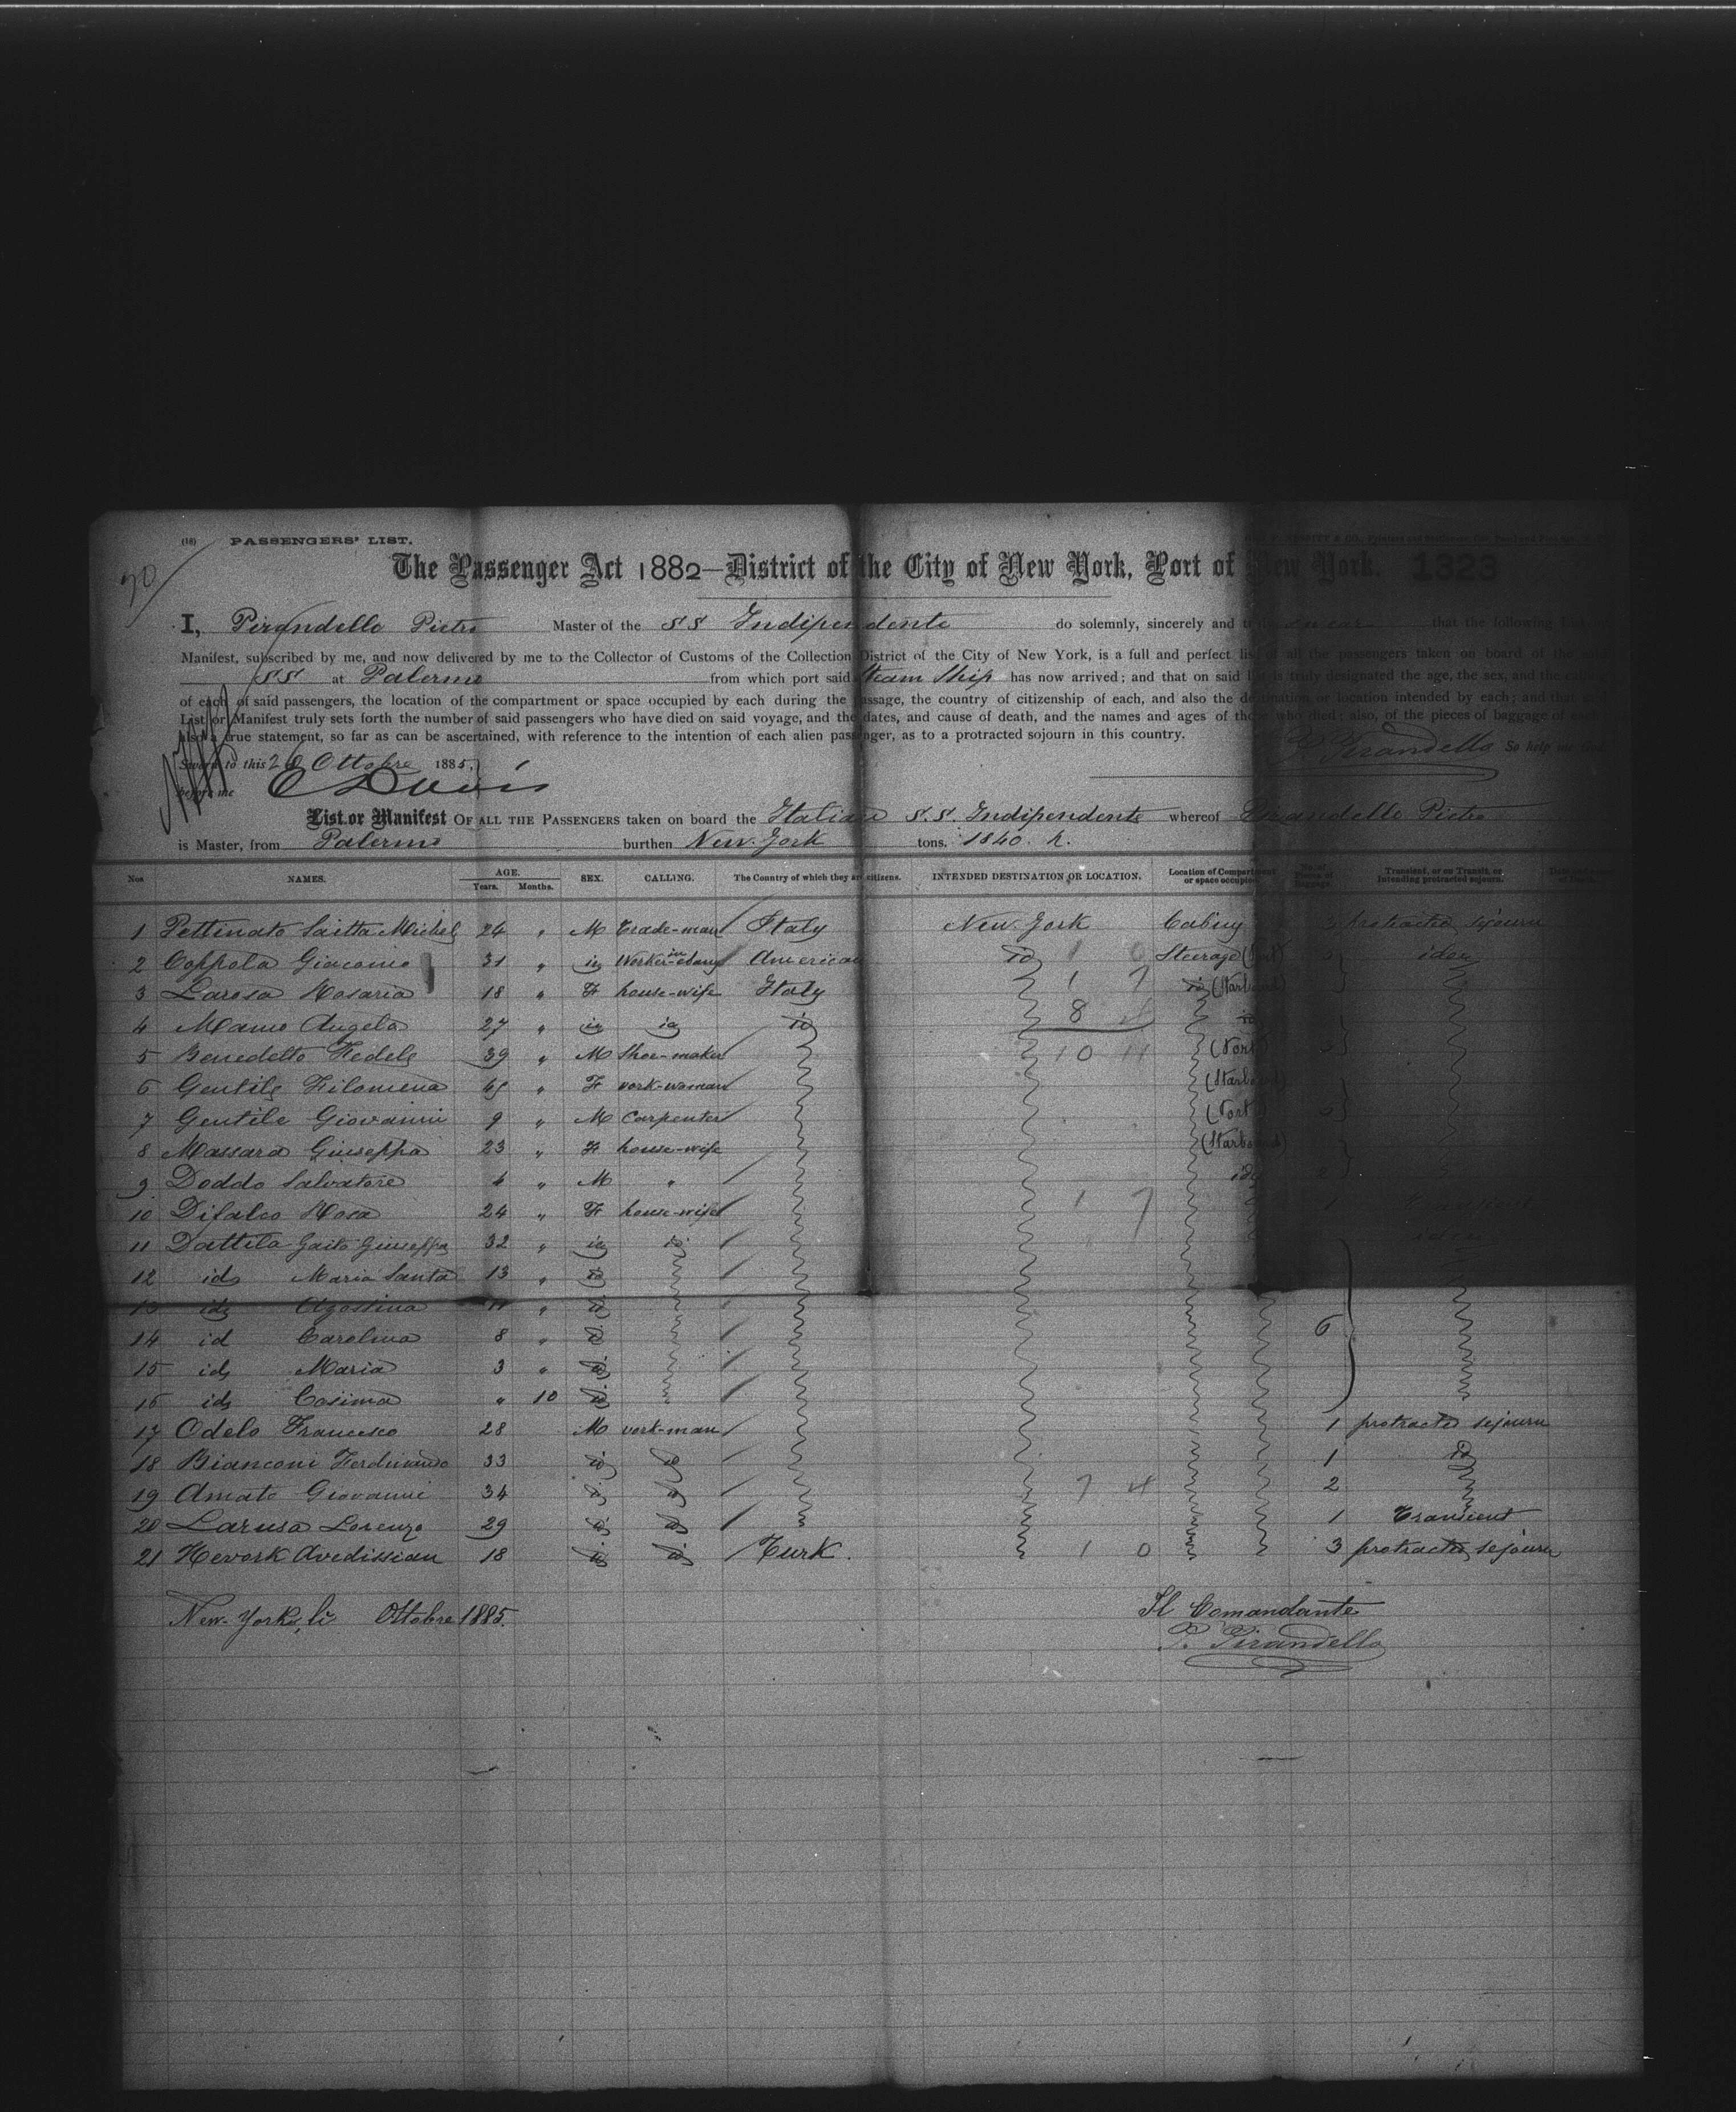 (18) PASSENGERS' LIST.
90
The Passenger Act 1882—District of the City of New York, Port of New York. 1323
I, Pirandello Pietro Master of the SS Indipendente do solemnly, sincerely and truly swear that the following List or
Manifest, subscribed by me, and now delivered by me to the Collector of Customs of the Collection District of the City of New York, is a full and perfect list of all the passengers taken on board of the said
SS at Palermo from which port said Steam Ship has now arrived; and that on said list is truly designated the age, the sex, and the calling
of each of said passengers, the location of the compartment or space occupied by each during the passage, the country of citizenship of each, and also the destination or location intended by each; and that said
List or Manifest truly sets forth the number of said passengers who have died on said voyage, and the dates, and cause of death, and the names and ages of those who died; also, of the pieces of baggage of each
also a true statement, so far as can be ascertained, with reference to the intention of each alien passenger, as to a protracted sojourn in this country.
P. Pirandello So help me God.
Sworn to this 26 Ottobre 1885,
before me
List or Manifest OF ALL THE PASSENGERS taken on board the Italian S.S. Indipendente whereof Pirandello Pietro
is Master, from Palermo burthen New-York tons. 1840.
Nos NAMES. AGE. Years. Months. SEX. CALLING. The Country of which they are citizens. INTENDED DESTINATION OR LOCATION. Location of Compartment or space occupied. No. of Pieces of Baggage. Transient, or on Transit, or Intending protracted sojourn.
1 Pettinato Saitta Michel 24 " M Trade-man Italy New-York Cabiny protracted sejourn
2 Coppola Giacomo 31 " id American id 1 0 Steerage idem
3 Larosa Rosaria 18 " F house-wife Italy 1 7 id (Starboard)
4 Manno Angela 27 " id id id 8 4 id
5 Benedetto Fedele 39 " M Shoe-maker 10 11 (Port)
6 Gentile Filomena 45 " F vork-woman (Starboard)
7 Gentile Giovanni 9 " M Carpenter (Port)
8 Massara Giuseppa 23 " F house-wife (Starboard)
9 Doddo Salvatore 4 " M " id
10 Difalco Rosa 24 " F house-wife 1 7 1 Transient
11 Dattila Gaito Giuseppa 32 " id id idem
12 id Maria Santa 13 " id
13 id Agostina 11 " id
14 id Carolina 8 " id 6
15 id Maria 3 " id
16 id Cosima " 10 id
17 Odelo Francesco 28 M vork-man 1 protracted sejourn
18 Bianconi Ferdinando 33 id id 1 id
19 Amato Giovanni 34 id id 7 4 2
20 Larusa Lorenzo 29 id id 1 Transient
21 Hevork Avedissian 18 id id Turk. 1 0 3 protracted sejourn
New-York, li Ottobre 1885.
Il Comandante
P. Pirandello